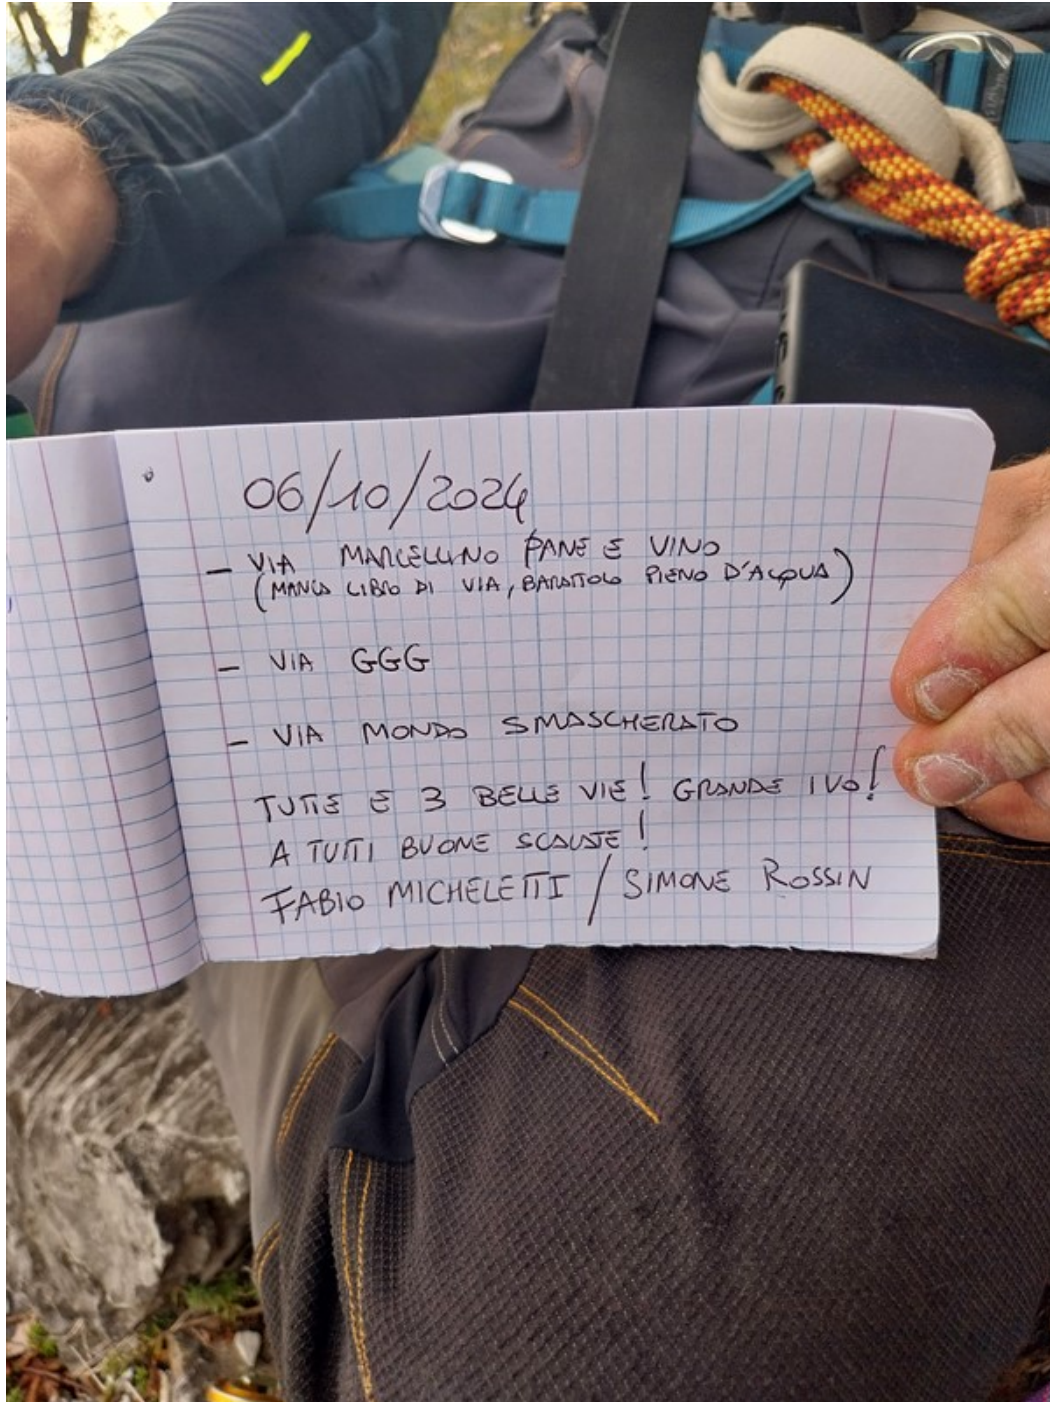 06/10/2024
– VIA MARCELLINO PANE E VINO
(MANCA LIBRO DI VIA, BARATTOLO PIENO D'ACQUA)
– VIA GGG
– VIA MONDO SMASCHERATO
TUTTE E 3 BELLE VIE! GRANDE IVO!
A TUTTI BUONE SCALATE!
FABIO MICHELETTI / SIMONE ROSSIN